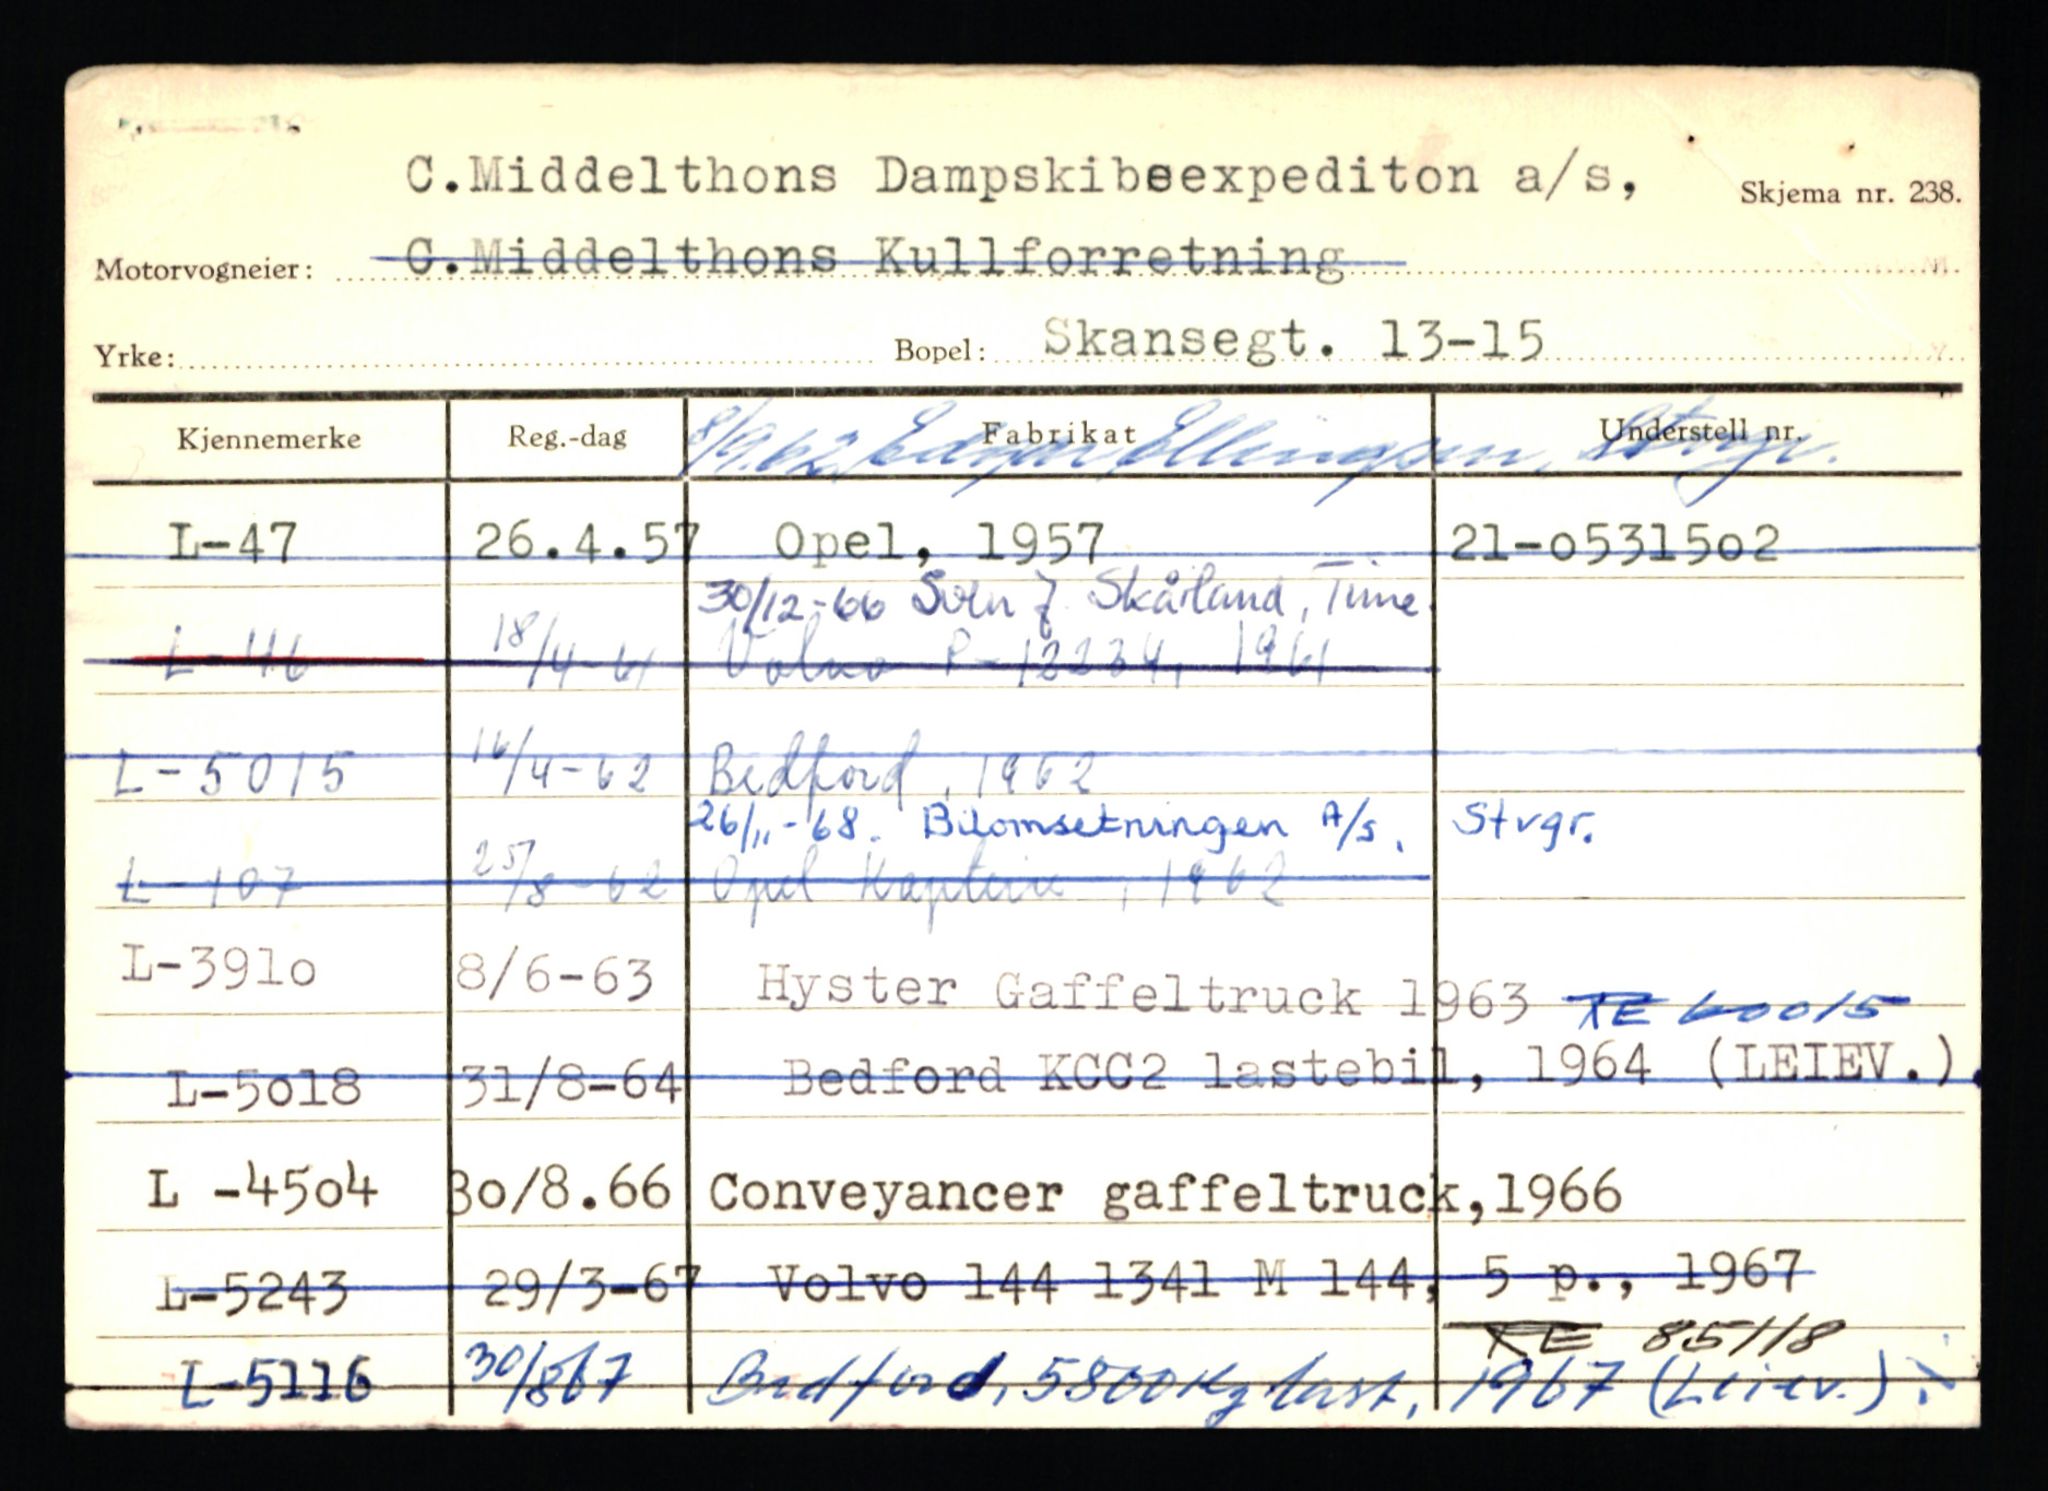 C.Middelthons Dampskibsexpediton a/s,
Skjema nr. 238.
Motorvogneier: C.Middelthons Kullforretning
Yrke: Bopel: Skansegt. 13-15
Kjennemerke Reg.-dag Fabrikat Understell nr.
8/9.62 Edgar Ellingsen, Stvgr.
L-47 26.4.57 Opel, 1957 21-0531502
30/12-66 Svein J. Skårland, Time.
L-46 18/4-61 Volvo P-12234, 1961
L-5015 16/4-62 Bedford, 1962
26/11-68. Bilomsetningen A/S. Stvgr.
L-107 25/8-62 Opel Kaptein, 1962
L-3910 8/6-63 Hyster Gaffeltruck 1963 RE 60015
L-5018 31/8-64 Bedford KCC2 lastebil, 1964 (LEIEV.)
L -4504 30/8.66 Conveyancer gaffeltruck,1966
L-5243 29/3-67 Volvo 144 1341 M 144, 5 p., 1967
RE 85118
L-5116 30/867 Bedford, 5800 kg last, 1967 (Leiev.)